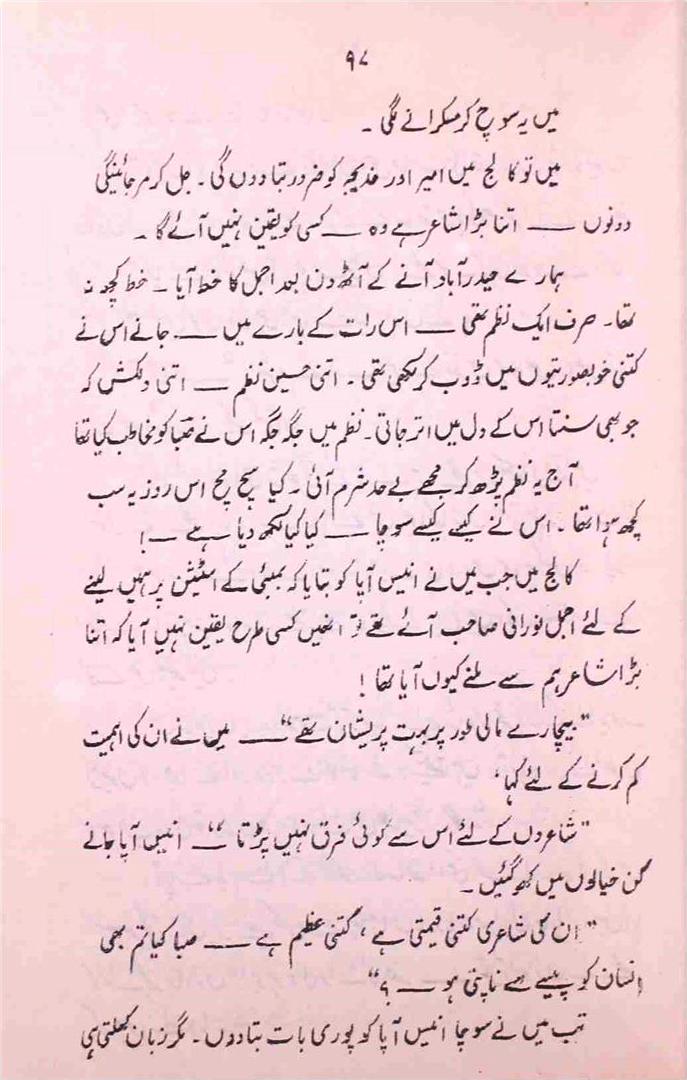 ۹۷
میں یہ سوچ کر مسکرانے لگی ۔
میں تو کالج میں امیر اور خدیجہ کو ضرور بتا دوں گی ۔ جل کر مر جائینگی
دونوں ــــ اتنا بڑا شاعر ہے وہ ــــ کسی کو یقین نہیں آئے گا ۔
ہمارے حیدرآباد آنے کے آٹھ دن بعد اجمل کا خط آیا ۔ خط کچھ نہ
تھا ۔ صرف ایک نظم تھی ــــ اس رات کے بارے میں ــــ جانے اس نے
کتنی خوبصورتیوں میں ڈوب کر لکھی تھی ۔ اتنی حسین نظم ــــ اتنی دلکش کہ
جو بھی سنتا اس کے دل میں اتر جاتی ۔ نظم میں جگہ جگہ اس نے صبا کو مخاطب کیا تھا
آج یہ نظم پڑھ کر مجھے بے حد شرم آئی ۔ کیا سچ مچ اس روز یہ سب
کچھ ہوا تھا ۔ اس نے کیسے کیسے سوچا ــــ کیا کیا لکھ دیا ہے ــ !
کالج میں جب میں نے انیس آپا کو بتایا کہ بمبئی کے اسٹیشن پر ہمیں لینے
کے لئے اجمل نورانی صاحب آئے تھے تو انھیں کسی طرح یقین نہیں آیا کہ اتنا
بڑا شاعر ہم سے ملنے کیوں آیا تھا !
"بیچارے مالی طور پر بہت پریشان تھے" ــــ میں نے ان کی اہمیت
کم کرنے کے لئے کہا ‘
"شاعروں کے لئے اس سے کوئی فرق نہیں پڑتا" ــ انیس آپا جانے
کن خیالوں میں کھو گئیں ۔
"ان کی شاعری کتنی قیمتی ہے ، کتنی عظیم ہے ــــ صبا کیا تم بھی
انسان کو پیسے سے ناپتی ہو ــــ ؟"
تب میں نے سوچا انیس آپا کو پوری بات بتا دوں ۔ مگر زبان کھلتی ہی